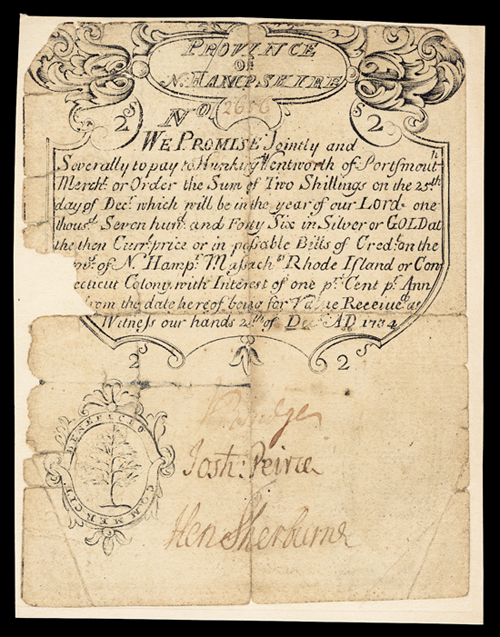 PROVINCE
OF
N. HAMPSHIRE
No
2s 2s
WE PROMISE Jointly and
Severally to pay to Hunking Wentworth of Portsmouth
Mercht or Order the Sum of Two Shillings on the 25th
day of Decr which will be in the year of our LORD one
thousd Seven hund and Forty Six in Silver or GOLD at
the then Currt price or in passable Bills of Cred on the
of N. Hampr Massachts Rhode Island or Con
ecticut Colony with Interest of one pr Cent pr Ann
from the date hereof being for Value Receiued as
Witness our hands 25th of Decr AD 1734
2s 2s
BENEFACIO
COMMERCII
Josh: Peirce
Hen Sherburne